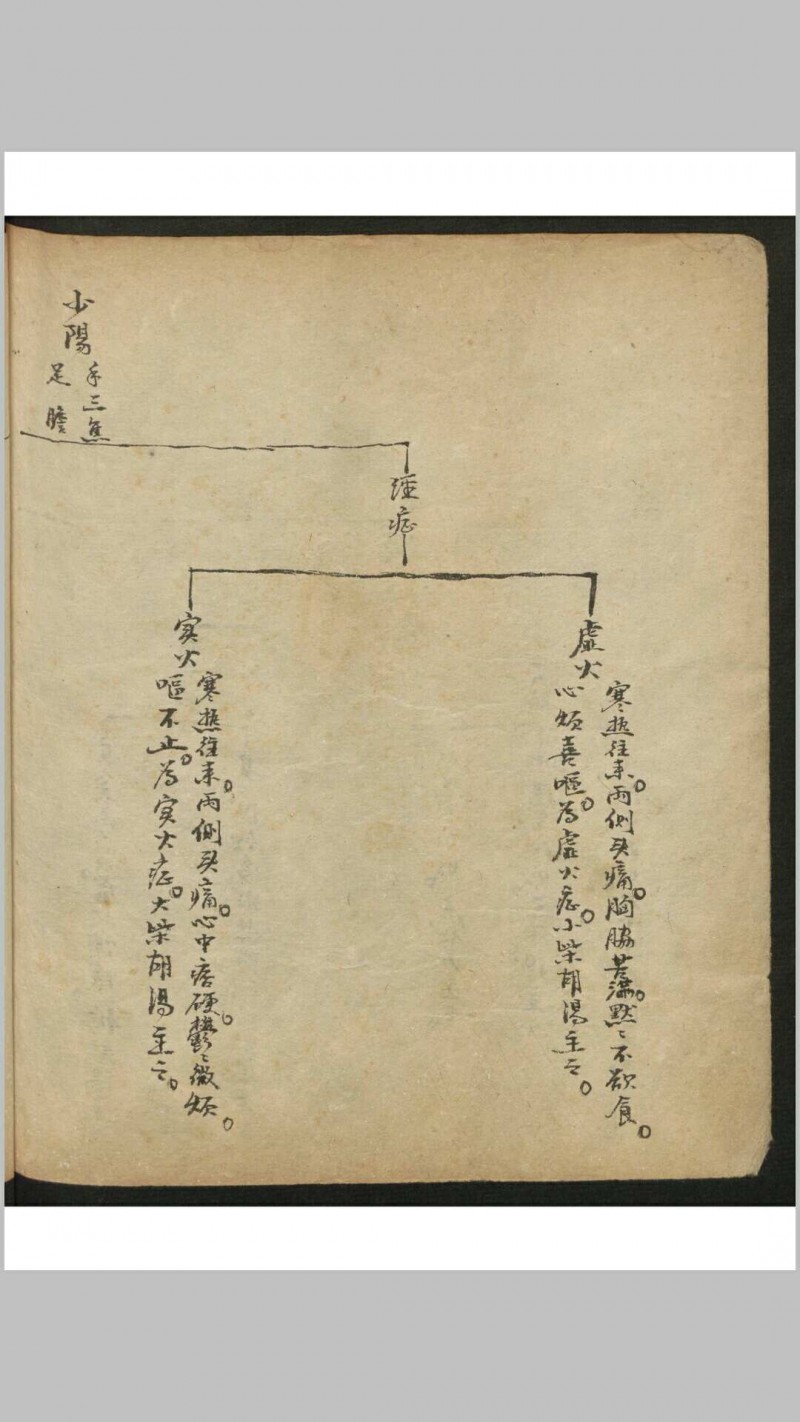 少陽
手三焦
足膽
經症
虛火
寒热往来。兩側头痛。胸脇苦滿。默〻不欲食。
心烦喜嘔。為虛火症。小柴胡湯主之。
实火
寒热往来。兩側头痛。心中痞硬。鬱〻微烦。
嘔不止。為实火症。大柴胡湯主之。